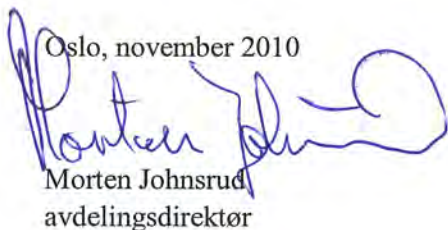 Oslo, november 2010
Morten Johnsrud
Morten Johnsrud
avdelingsdirektør